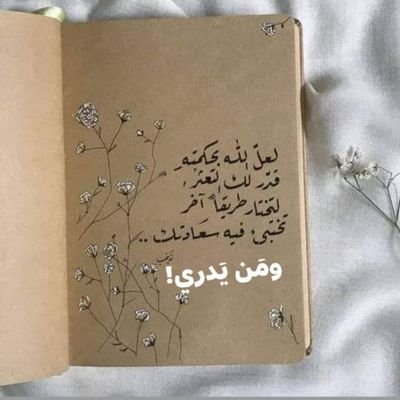 لعلّ الله بحكمتهِ
قدّر لك التعثر،
لتختار طريقاً آخر
تختبئ فيه سعادتك ..
ومَن يَدري!